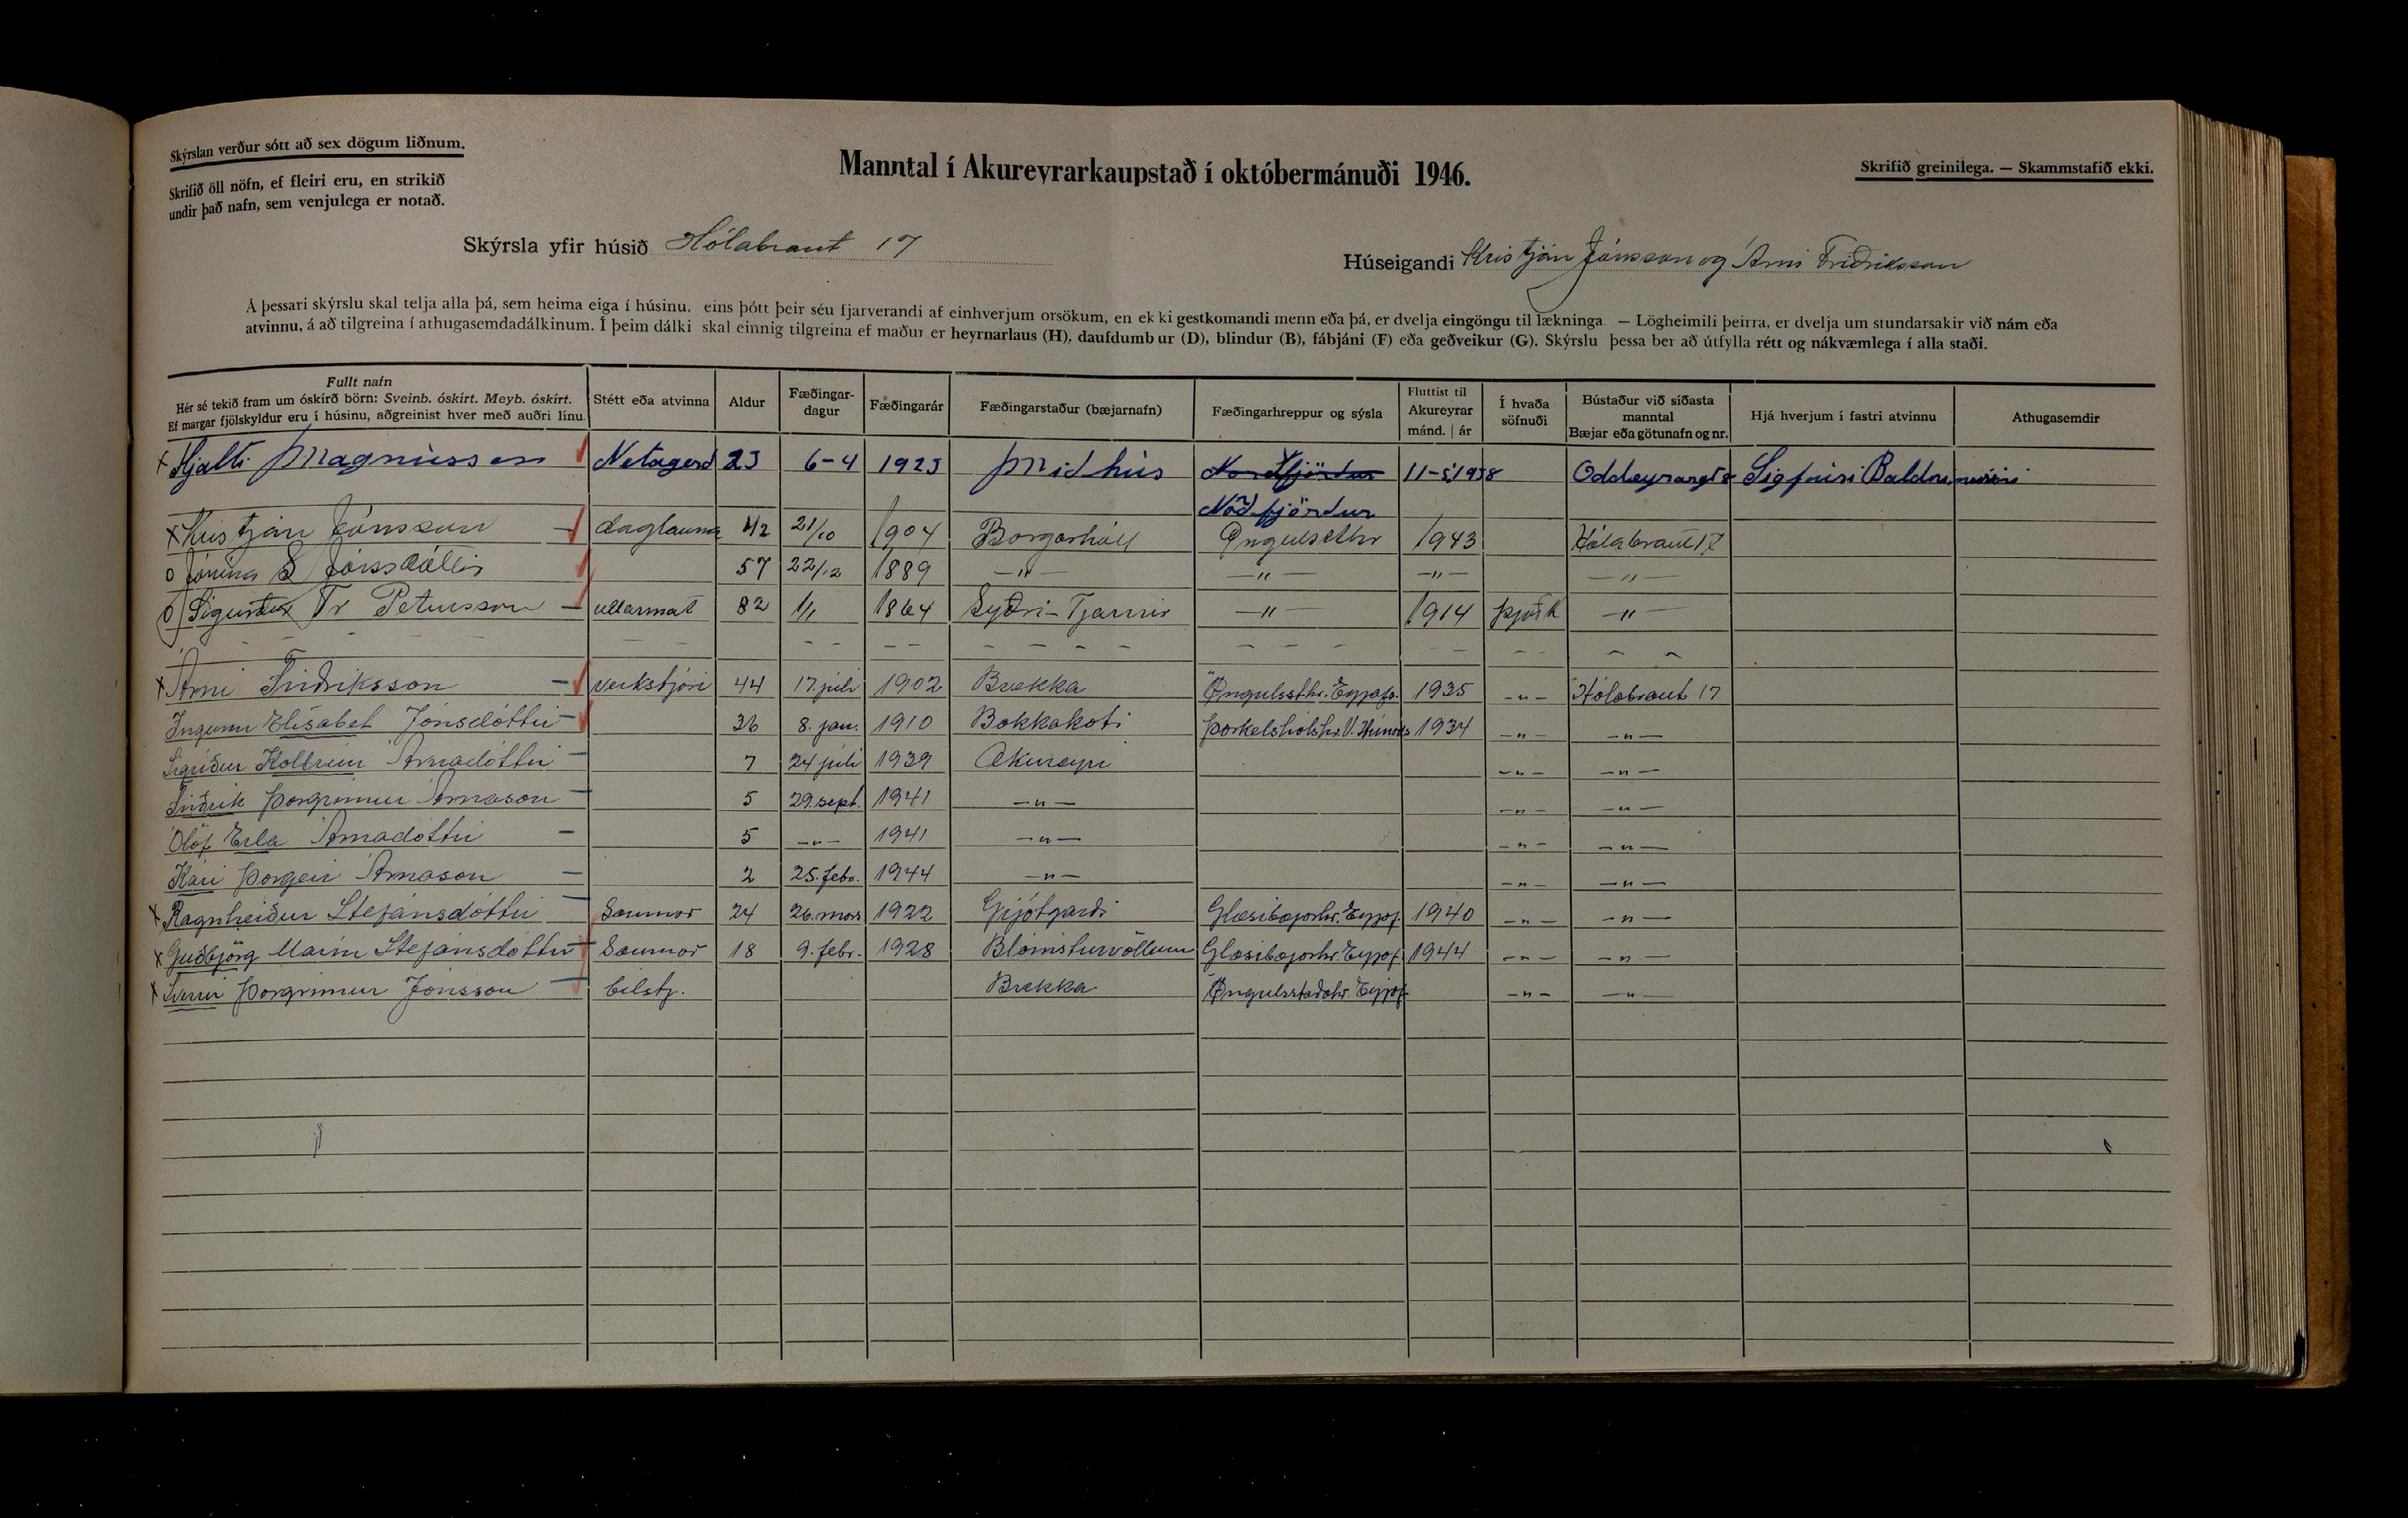 Skýrslan verður sótt að sex dögum liðnum.
Skrifið öll nöfn, ef fleiri eru, en strikið
undir það nafn, sem venjulega er notað.
Manntal í Akureyrarkaupstað í októbermánuði 1946.
Skrifið greinilega. — Skammstafið ekki.
Skýrsla yfir húsið Hólabraut 17
Húseigandi Kristján Jónsson og Árni Friðriksson
Á þessari skýrslu skal telja alla þá, sem heima eiga í húsinu, eins þótt þeir séu fjarverandi af einhverjum orsökum, en ekki gestkomandi menn eða þá, er dvelja eingöngu til lækninga. — Lögheimili þeirra, er dvelja um stundarsakir við nám eða
atvinnu, á að tilgreina í athugasemdadálkinum. Í þeim dálki skal einnig tilgreina ef maður er heyrnarlaus (H), daufdumbur (D), blindur (B), fábjáni (F) eða geðveikur (G). Skýrslu þessa ber að útfylla rétt og nákvæmlega í alla staði.
Fullt nafn
Hér sé tekið fram um óskírð börn: Sveinb. óskírt. Meyb. óskírt.
Ef margar fjölskyldur eru í húsinu, aðgreinist hver með auðri línu.
Stétt eða atvinna
Aldur
Fæðingar-
dagur
Fæðingarár
Fæðingarstaður (bæjarnafn)
Fæðingarhreppur og sýsla
Fluttist til
Akureyrar
mánd. | ár
Í hvaða
söfnuði
Bústaður við síðasta
manntal
Bæjar eða götunafn og nr.
Hjá hverjum í fastri atvinnu
Athugasemdir
x Hjalti Magnússon Netagerd 23 6-4 1923 Midhús Nordfjördur 11-5 1938 Oddeyrarg Sigfúsi Baldvinssini
Nodfjördur
x Kristján Jónsson daglauna 42 21/10 1904 Borgarhóll Öngulsthr 1943 Hólabraut 17
o Jónína S Jónsdóttir 57 22/12 1889 —"— —"— —"— —"—
o Sigurður Tr Petursson ullarmat 82 1/1 1864 Syðri-Tjarnir —"— 1914 þjóðk —"—
x Árni Friðriksson verkstjóri 44 17. júlí 1902 Brekka Öngulssthr. Eyjafs. 1935 —"— Hólabraut 17
Ingunn Elísabet Jónsdóttir 36 8. jan. 1910 Bakkakoti Þorkelshólshr. V. Húnavs 1934 —"— —"—
Sigríður Kolbrún Árnadóttir 7 24 júlí 1939 Akureyri —"— —"—
Friðrik Þorgrímur Árnason 5 29. sept. 1941 —"— —"— —"—
Ólöf Erla Árnadóttir 5 —"— 1941 —"— —"— —"—
Kári Þorgeir Árnason 2 25. febr. 1944 —"— —"— —"—
x Ragnheiður Stefánsdóttir Saumar 24 26. mars 1922 Grjótgarði Glæsibæjarhr. Eyjaf. 1940 —"— —"—
x Guðbjörg María Stefánsdóttir Saumar 18 9. febr. 1928 Blómsturvöllum Glæsibæjarhr. Eyjaf. 1944 —"— —"—
x Sverrir Þorgrímur Jónsson bílstj. Brekka Öngulsstaðahr. Eyjaf. —"— —"—